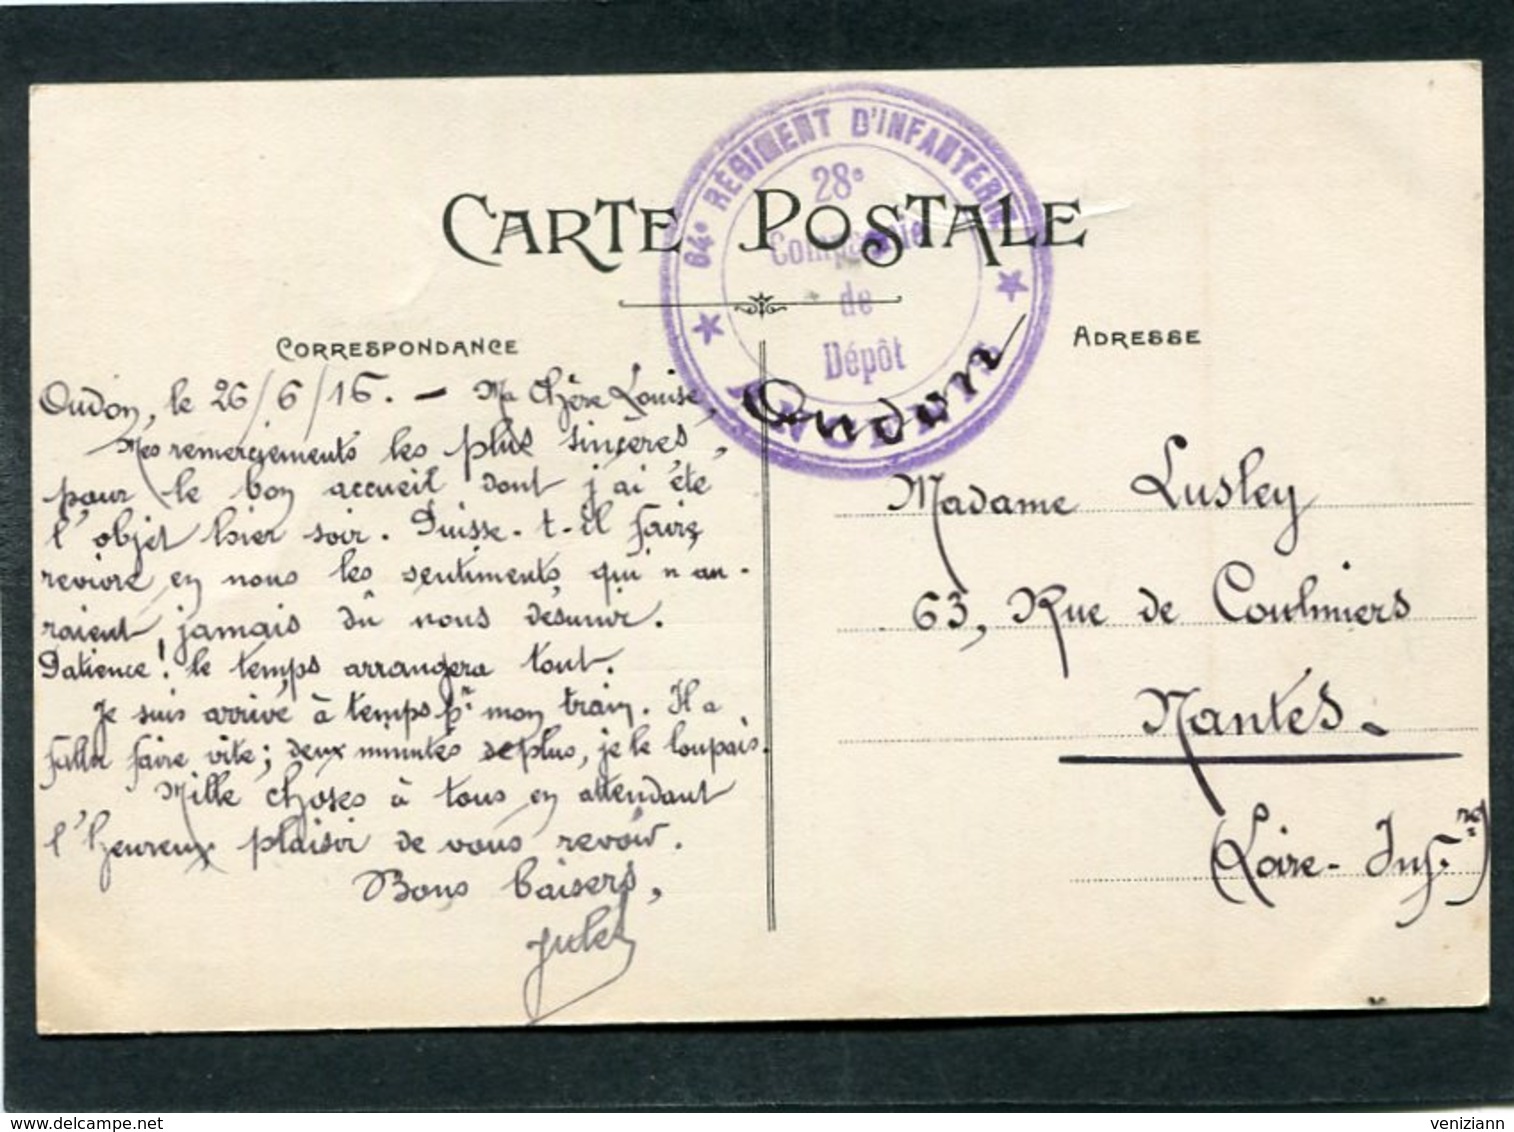 CARTE POSTALE
64e RÉGIMENT D'INFANTERIE
28e
Compagnie
de
Dépôt
ANCENIS
Oudon
CORRESPONDANCE
Oudon, le 26/6/16. — Ma Chère Louise,
Mes remerciements les plus sincères,
pour le bon accueil dont j'ai été
l'objet hier soir. Puisse-t-il faire
revivre en nous les sentiments qui n'au-
raient jamais dû nous désunir.
Patience! le temps arrangera tout.
Je suis arrivé à temps pr mon train. Il a
fallu faire vite; deux minutes de plus, je le loupais.
Mille choses à tous en attendant
l'heureux plaisir de vous revoir.
Bons baisers,
Jules
ADRESSE
Madame Lusley
63, Rue de Coulmiers
Nantes.
(Loire-Infre)
delcampe.net
veniziann